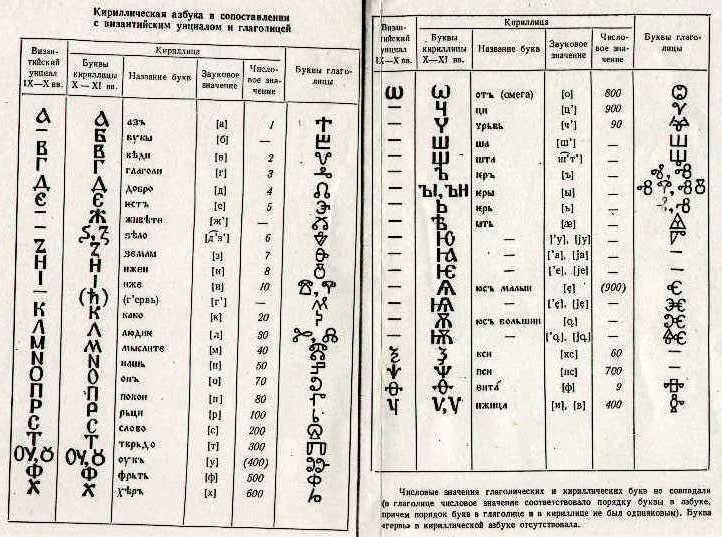 Кириллическая азбука в сопоставлении
с византийским унциалом и глаголицей
Визан-
тийский
унциал
IX—X вв.
Кириллица
Буквы
кириллицы
X—XI вв.
Название букв
Звуковое
значение
Число-
вое зна-
чение
Буквы глаго-
лицы
А А азъ [а] 1
— Б букы [б] —
В В вѣди [в] 2
Г Г глаголи [г] 3
Д Д добро [д] 4
Є Є [е] 5
— Ж живѣте [ж’] —
— Ѕ, Z ѕѣло [д͡’з’] 6
Z Z [з] 7
Н Н ижеи [и] 8
І І иже [и] 10
— (ћ) (г’ервь) [г’] —
К К како [к] 20
Л Л людик [л] 30
М М мыслите [м] 40
N N нашь [н] 50
О О онъ [о] 70
П П покои [п] 80
Р Р рьци [р] 100
С С слово [с] 200
Т Т тврьдо [т] 300
ОУ, Ȣ ОУ, Ȣ оукъ [у] (400)
Ф Ф фрьтъ [ф] 500
Х Х хѣръ [х] 600
Визан-
тийский
унциал
IX—X вв.
Кириллица
Буквы
кириллицы
X—XI вв.
Название букв
Звуковое
значение
Число-
вое зна-
чение
Буквы глаго-
лицы
Ѡ Ѡ отъ (омега) [о] 800
— Ц ци [ц’] 900
— Ч чрьвь [ч’] 90
— Ш ша [ш’] —
— Щ шта [ш͡’т’] —
— Ъ ѥръ [ъ] —
— ЪІ, ЪИ ѥры [ы] —
— Ь ѥрь [ь] —
— Ѣ ѩть [æ] —
— Ю — [’у], [jу] —
— Ꙗ — [’а], [jа] —
— Ѥ — [’е], [jе] —
— Ѧ юсъ малыи [ę] (900)
— Ѩ — [’ę], [ję] —
— Ѫ юсъ большии [ǫ] —
— Ѭ — [’ǫ], [jǫ] —
Ѯ Ѯ кси [кс] 60 —
Ѱ Ѱ пси [пс] 700 —
Ѳ Ѳ ѳита [ф] 9
Ч Ѵ, Ѵ ижица [и], [в] 400
Числовые значения глаголических и кириллических букв не совпадали
(в глаголице числовое значение соответствовало порядку букв в азбуке,
причем порядок букв в глаголице и в кириллице не был одинаковым). Буква
«гервь» в кириллической азбуке отсутствовала.